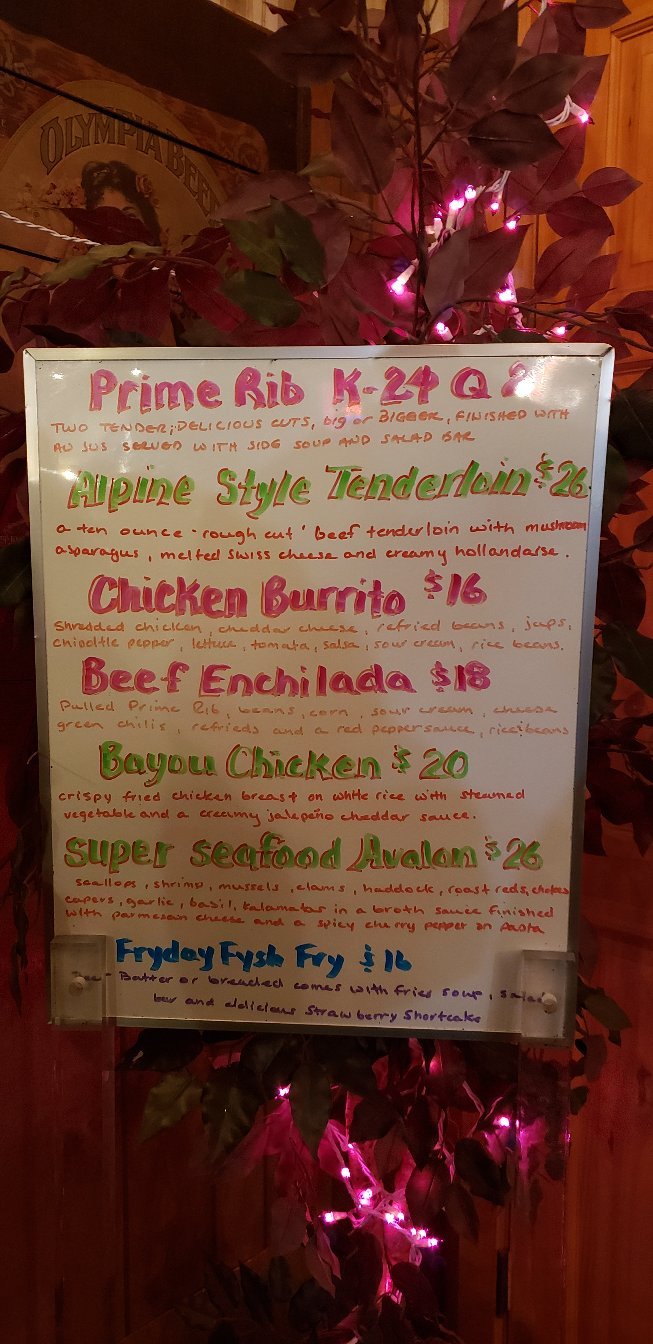 OLYMPIA BEER
Prime Rib K-24 Q
TWO TENDER, DELICIOUS CUTS, big or BIGGER, FINISHED WITH
AU JUS SERVED WITH SIDE SOUP AND SALAD BAR
Alpine Style Tenderloin $26
a ten ounce "rough cut" beef tenderloin with mushroom
asparagus, melted swiss cheese and creamy hollandaise.
Chicken Burrito $16
Shredded chicken, cheddar cheese, refried beans, japs,
chipoltle pepper, lettuce, tomato, salsa, sour cream, rice beans.
Beef Enchilada $18
Pulled Prime Rib, beans, corn, sour cream, cheese
green chilis, refrieds and a red pepper sauce, rice:beans
Bayou Chicken $20
crispy fried chicken breast on white rice with steamed
vegetable and a creamy jalepeño cheddar sauce.
Super Seafood Avalon $26
scallops, shrimp, mussels, clams, haddock, roast reds, chokes
capers, garlic, basil, kalamatas in a broth sauce finished
with parmesan cheese and a spicy cherry pepper on pasta
Fryday Fysh Fry $16
Batter or breaded comes with fries soup, salad
bar and a delicious strawberry shortcake